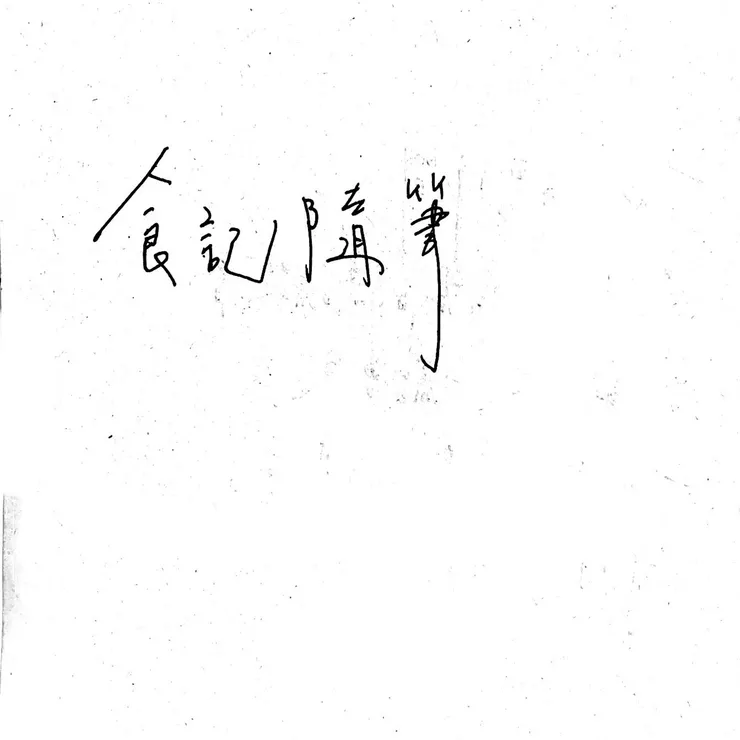 食記隨筆